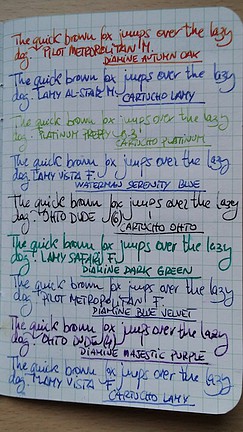 The quick brown fox jumps over the lazy
dog. PILOT METROPOLITAN M.
DIAMINE AUTUMN OAK
The quick brown fox jumps over the lazy
dog. LAMY AL-STAR M.
CARTUCHO LAMY
The quick brown fox jumps over the lazy
dog. PLATINUM PREPPY 0.3
CARTUCHO PLATINUM
The quick brown fox jumps over the lazy
dog. LAMY VISTA F.
WATERMAN SERENITY BLUE
The quick brown fox jumps over the lazy
dog. OHTO DUDE
CARTUCHO OHTO
The quick brown fox jumps over the lazy
dog. LAMY SAFARI F.
DIAMINE DARK GREEN
The quick brown fox jumps over the lazy
dog. PILOT METROPOLITAN F.
DIAMINE BLUE VELVET
The quick brown fox jumps over the lazy
dog. OHTO DUDE
DIAMINE MAJESTIC PURPLE
The quick brown fox jumps over the lazy
dog. LAMY VISTA F.
CARTUCHO LAMY